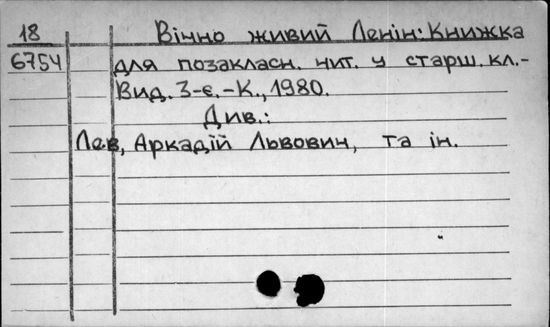 18 Вічно живий Ленін: Книжка
6754 для позакласн. чит. у старш. кл.-
Вид. 3-є.-К., 1980.
Див.:
Лев, Аркадій Львович, та ін.